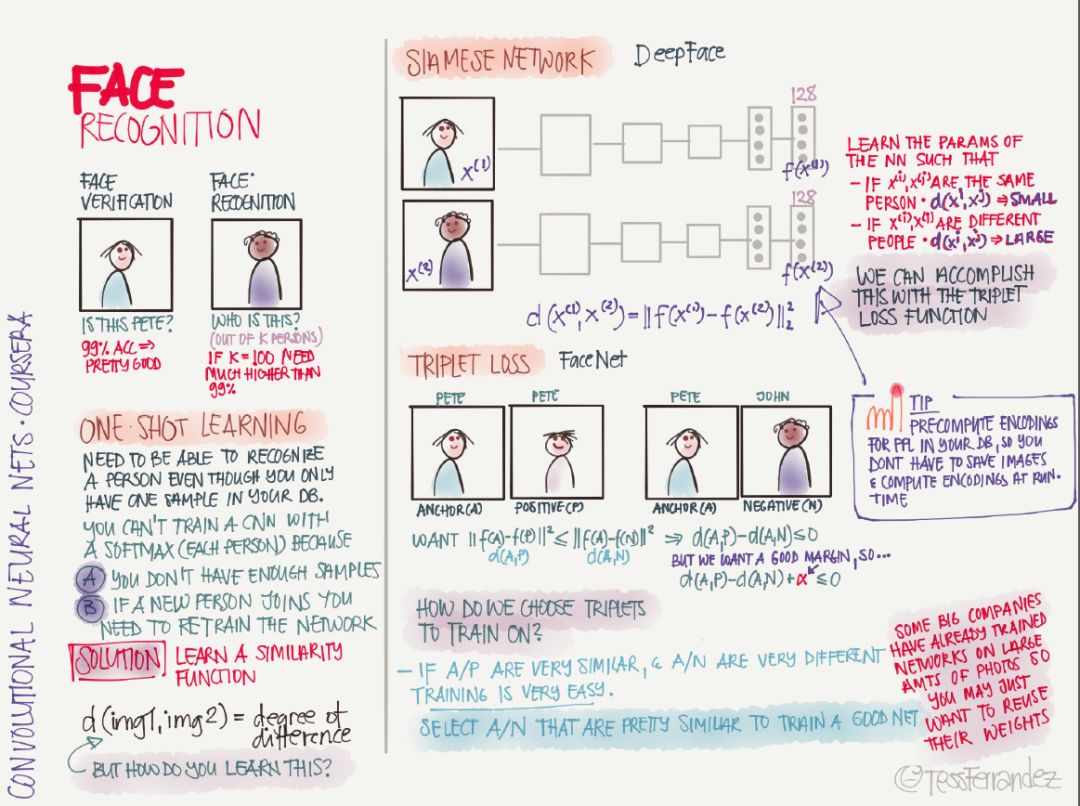 CONVOLUTIONAL NEURAL NETS · COURSERA
FACE
RECOGNITION
FACE
VERIFICATION
FACE·
RECOGNITION
IS THIS PETE?
99% ACC ⇒
PRETTY GOOD
WHO IS THIS?
(OUT OF K PERSONS)
IF K=100 NEED
MUCH HIGHER THAN
99%
ONE·SHOT LEARNING
NEED TO BE ABLE TO RECOGNIZE
A PERSON EVEN THOUGH YOU ONLY
HAVE ONE SAMPLE IN YOUR DB.
YOU CAN'T TRAIN A CNN WITH
A SOFTMAX (EACH PERSON) BECAUSE
A YOU DON'T HAVE ENOUGH SAMPLES
B IF A NEW PERSON JOINS YOU
NEED TO RETRAIN THE NETWORK
SOLUTION LEARN A SIMILARITY
FUNCTION
d(img1, img2) = degree of
difference
BUT HOW DO YOU LEARN THIS?
SIAMESE NETWORK DeepFace
128
X⁽¹⁾
f(X⁽¹⁾)
128
X⁽²⁾
f(X⁽²⁾)
d(X⁽¹⁾, X⁽²⁾) = ||f(X⁽¹⁾) - f(X⁽²⁾)||₂²
LEARN THE PARAMS OF
THE NN SUCH THAT
- IF X⁽ⁱ⁾, X⁽ʲ⁾ ARE THE SAME
PERSON · d(Xⁱ, Xʲ) ⇒ SMALL
- IF X⁽ⁱ⁾, X⁽ʲ⁾ ARE DIFFERENT
PEOPLE · d(Xⁱ, Xʲ) ⇒ LARGE
WE CAN ACCOMPLISH
THIS WITH THE TRIPLET
LOSS FUNCTION
TIP
PRECOMPUTE ENCODINGS
FOR PPL IN YOUR DB, SO YOU
DONT HAVE TO SAVE IMAGES
& COMPUTE ENCODINGS AT RUN-
TIME
TRIPLET LOSS FaceNet
PETE PETE PETE JOHN
ANCHOR(A) POSITIVE(P) ANCHOR(A) NEGATIVE(N)
WANT ||f(A)-f(P)||² ≤ ||f(A)-f(N)||² ⇒ d(A,P)-d(A,N) ≤ 0
d(A,P) d(A,N)
BUT WE WANT A GOOD MARGIN, SO...
d(A,P)-d(A,N)+α ≤ 0
HOW DO WE CHOOSE TRIPLETS
TO TRAIN ON?
- IF A/P ARE VERY SIMILAR, & A/N ARE VERY DIFFERENT
TRAINING IS VERY EASY.
SELECT A/N THAT ARE PRETTY SIMILAR TO TRAIN A GOOD NET
SOME BIG COMPANIES
HAVE ALREADY TRAINED
NETWORKS ON LARGE
AMTS OF PHOTOS SO
YOU MAY JUST
WANT TO REUSE
THEIR WEIGHTS
@TessFerrandez